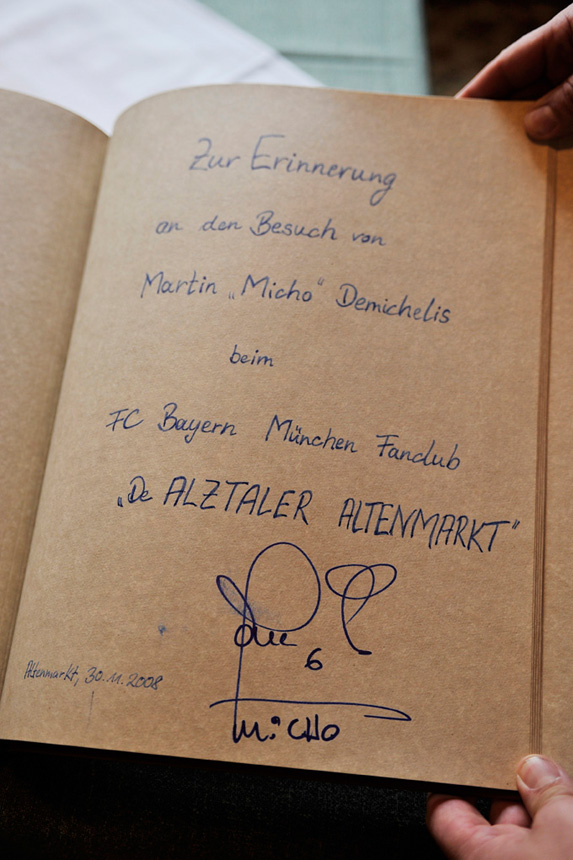 Zur Erinnerung
an den Besuch von
Martin „Micho“ Demichelis
beim
FC Bayern München Fanclub
„De ALZTALER ALTENMARKT“
6
Altenmarkt, 30.11.2008
MiCHO